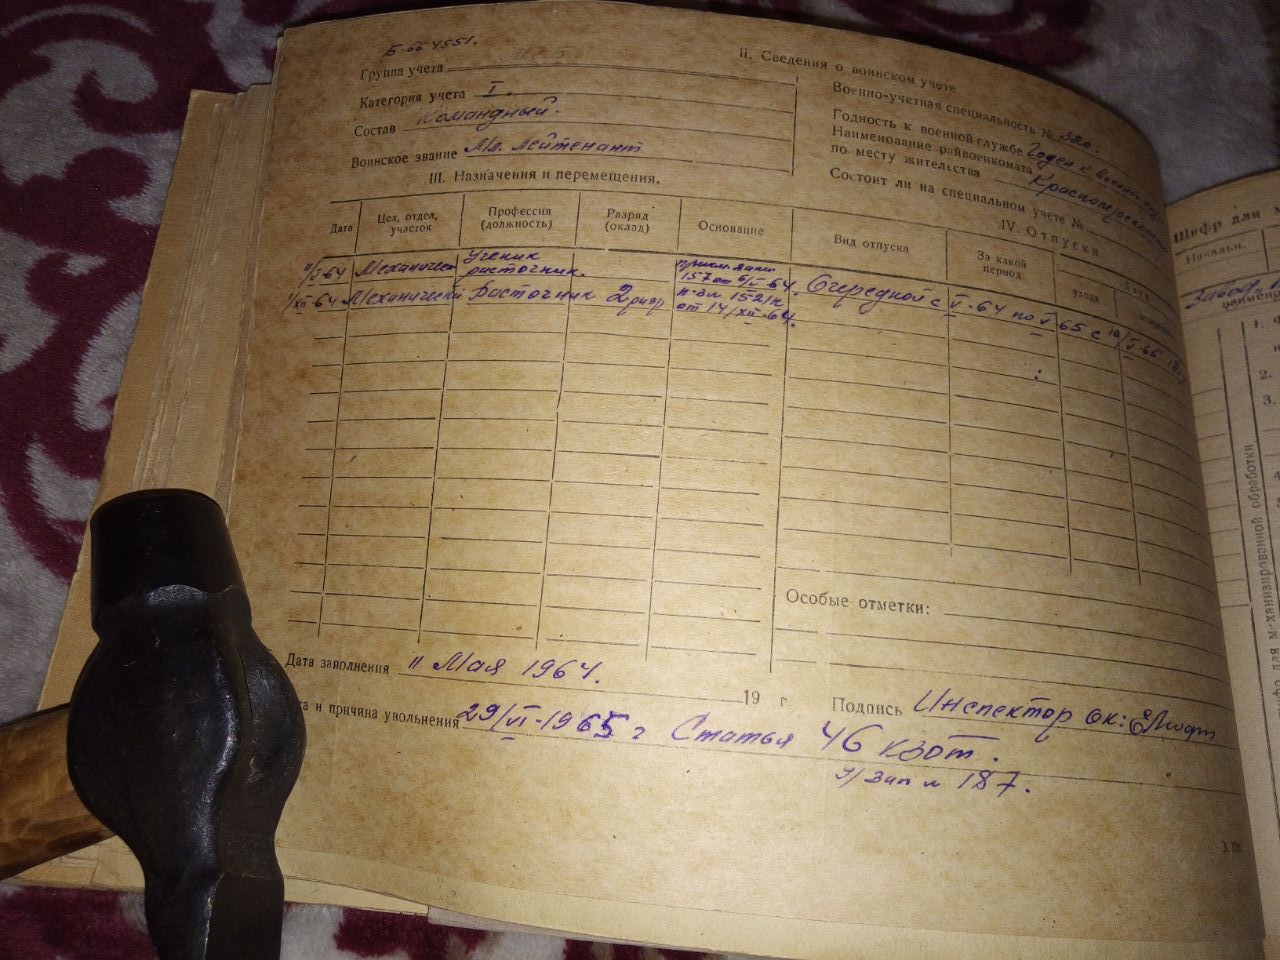 Б-664551.
Группа учета
Категория учета I.
Состав Командный.
Воинское звание Мл. лейтенант
II. Сведения о воинском учете
Военно-учетная специальность №
Годность к военной службе Годен к
Наименование райвоенкомата
по месту жительства
Состоит ли на специальном учете №
III. Назначения и перемещения.
Дата
Цех, отдел, участок
Профессия (должность)
Разряд (оклад)
Основание
11/V-64 Механический Ученик расточник. 157 от 6/V-64.
1/XII-64 Механический Расточник 2 разр 1521к от 14/XII-64.
IV. Отпуски
Вид отпуска
За какой период
Дата
ухода
Очередной с V-64 по V 65 с 19/V-65
Особые отметки:
Дата заполнения 11 Мая 1964.
19 г.
Подпись Инспектор ок:
и причина увольнения 29/VI-1965 г Статья 46 кзот.
187.
Шифр для
Начальн.
1.
2.
3.
4.
обработки